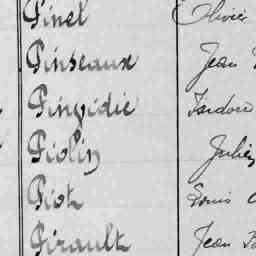 Pinel Olivier
Pinseaux Jean
Pinpidie Isidore
Piolin Julien
Piot Louis
Pirault Jean